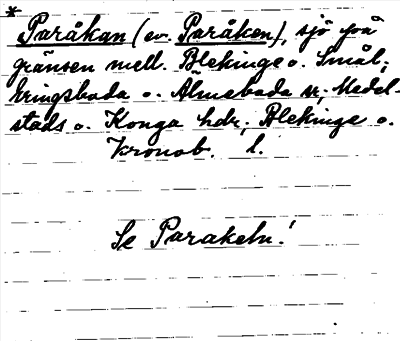 * Paråkan (ev. Paråken), sjö på
gränsen mell. Blekinge o. Smål.;
Kringsboda o. Älmeboda sr, Medel-
stads o. Konga hdr; Blekinge o.
Kronob. l.
Se Parakeln!